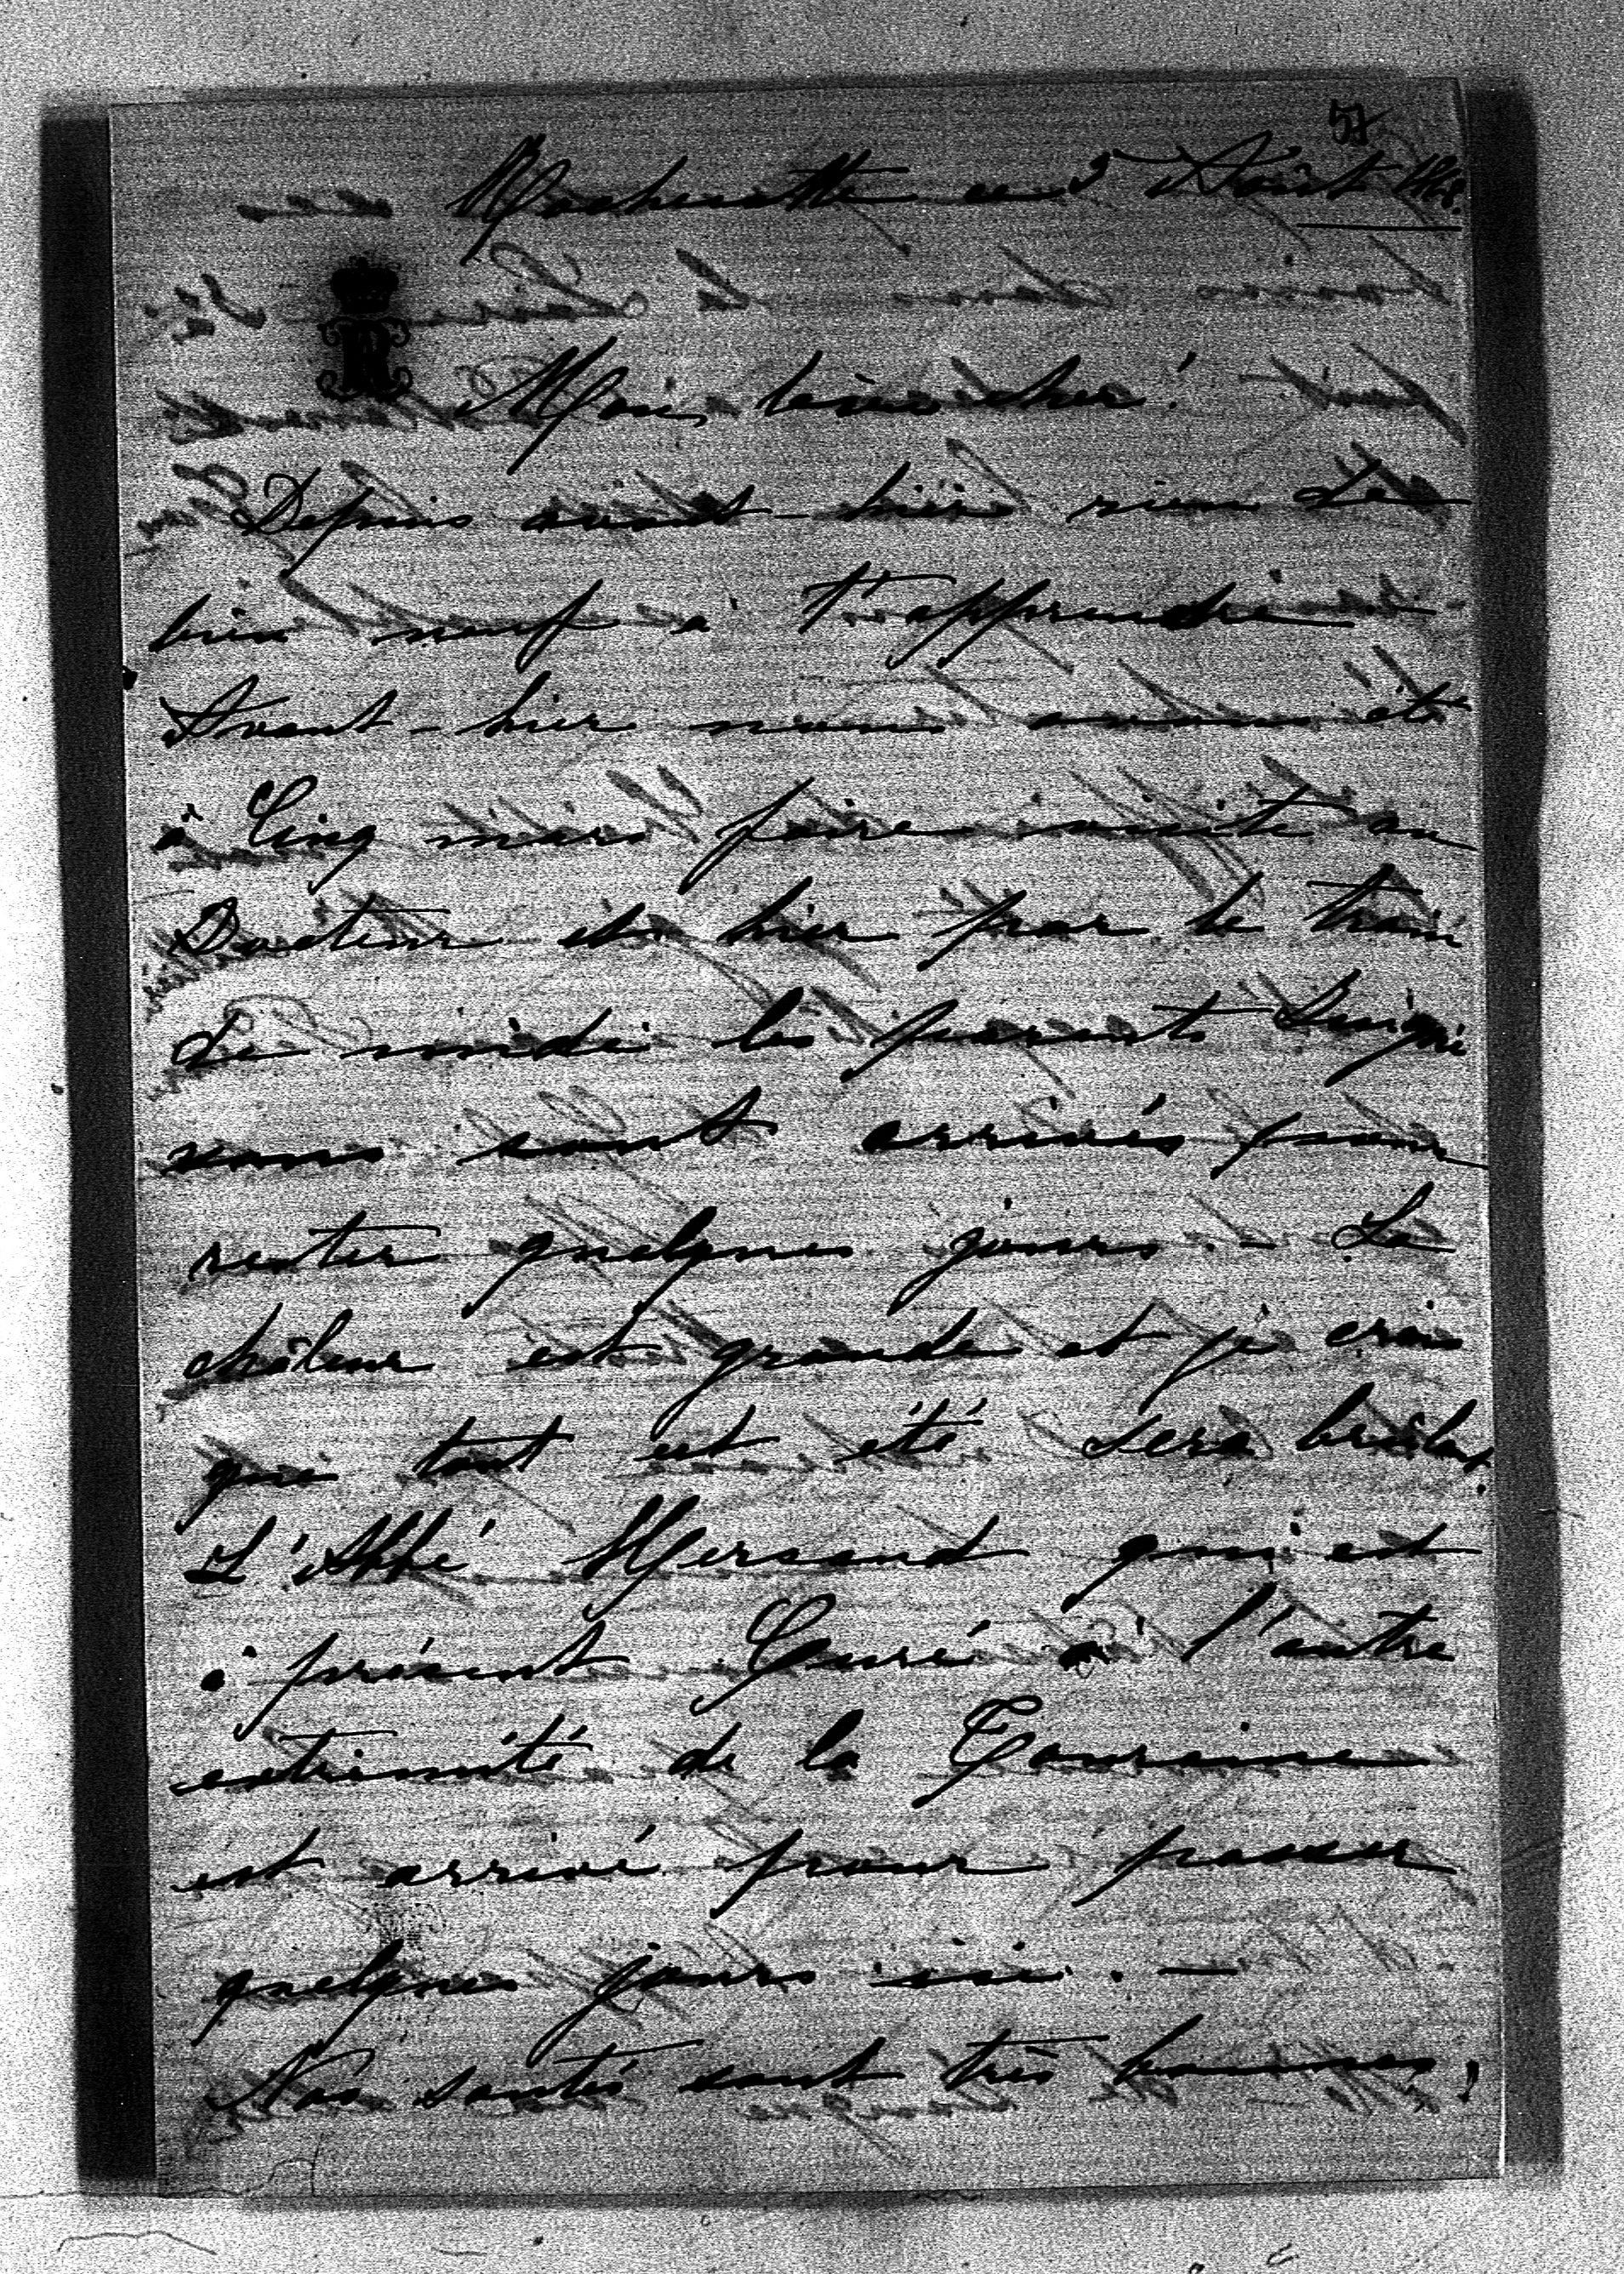 57
Rochecotte ce 3 Août 1868.
Mon bien cher!
Depuis avant-hier rien de
bien neuf à t'apprendre
Avant-hier nous avons été
à Cinq mars faire visite au
Docteur et hier par le train
de midi les parents
nous sont arrivés pour
rester quelques jours. - La
châleur est grande et je crois
que tout cet été sera brûlant.
L'Abbé Mersand qui est
à présent Curé à l'autre
extrémité de la Touraine
est arrivé pour passer
quelques jours ici. -
Nos santés sont très bonnes,